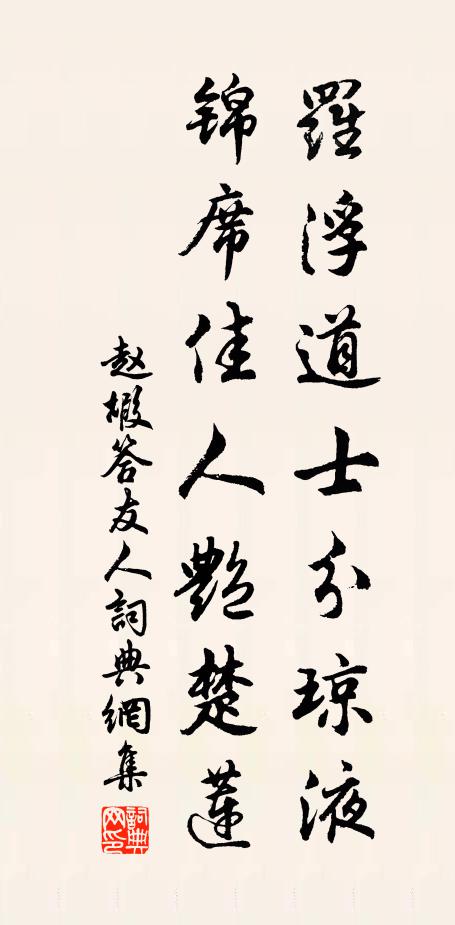 羅浮道士分琼液
锦席佳人艷楚蓮
赵椴答友人詞典網集
詞典网印